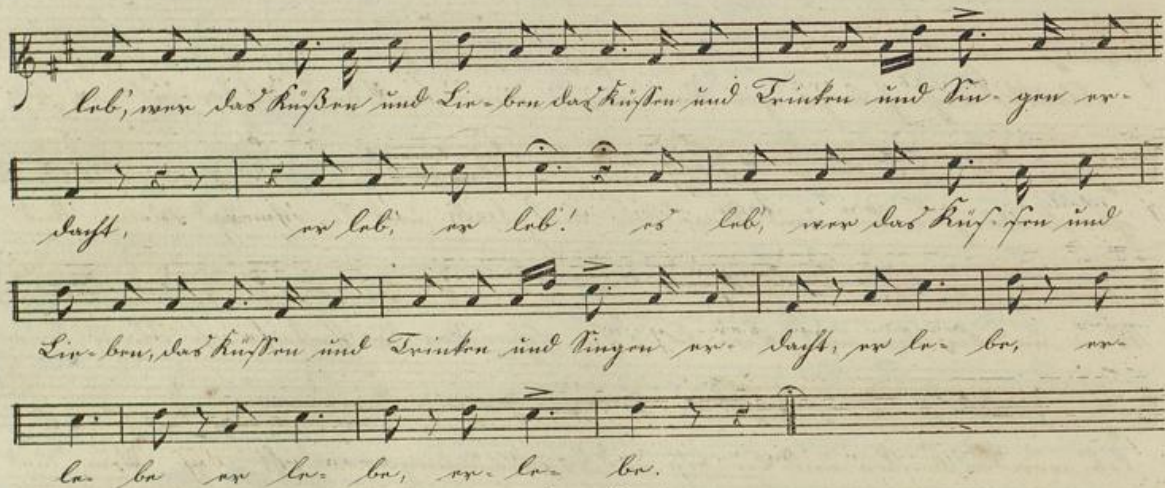 leb', wer das Küßen und Lie-ben das Küssen und Trinken und Sin-gen er-
dacht, er leb', er leb'! es leb', wer das Küs-sen und
Lie-ben, das Küssen und Trinken und Singen er-dacht, er le-be, er-
le-be er le-be, er-le-be.